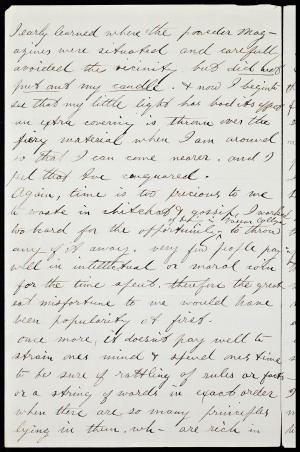 I early learned where the powder mag-
azines were situated and carefull
avoided the vicinity but did not
put out my candle. & now I begin to
see that my little light has had its effect
an extra covering is thrown over the
fiery material when I am around
so that I can come nearer. and I
feel that I've conquered.
Again, time is too precious to me
to waste in chitchat & gossip, I worked
too hard for the opportunity of being in College to throw
any of it away. very few people pay
well in intellectual or moral coin
for the time spent. therefore the great
est misfortune to me would have
been popularity at first.
once more, it doesn't pay well to
strain ones mind & spend ones time
to be sure of rattling of rules or facts
or a string of words in exact order
when there are so many principles
lying in them. wh- are rich in